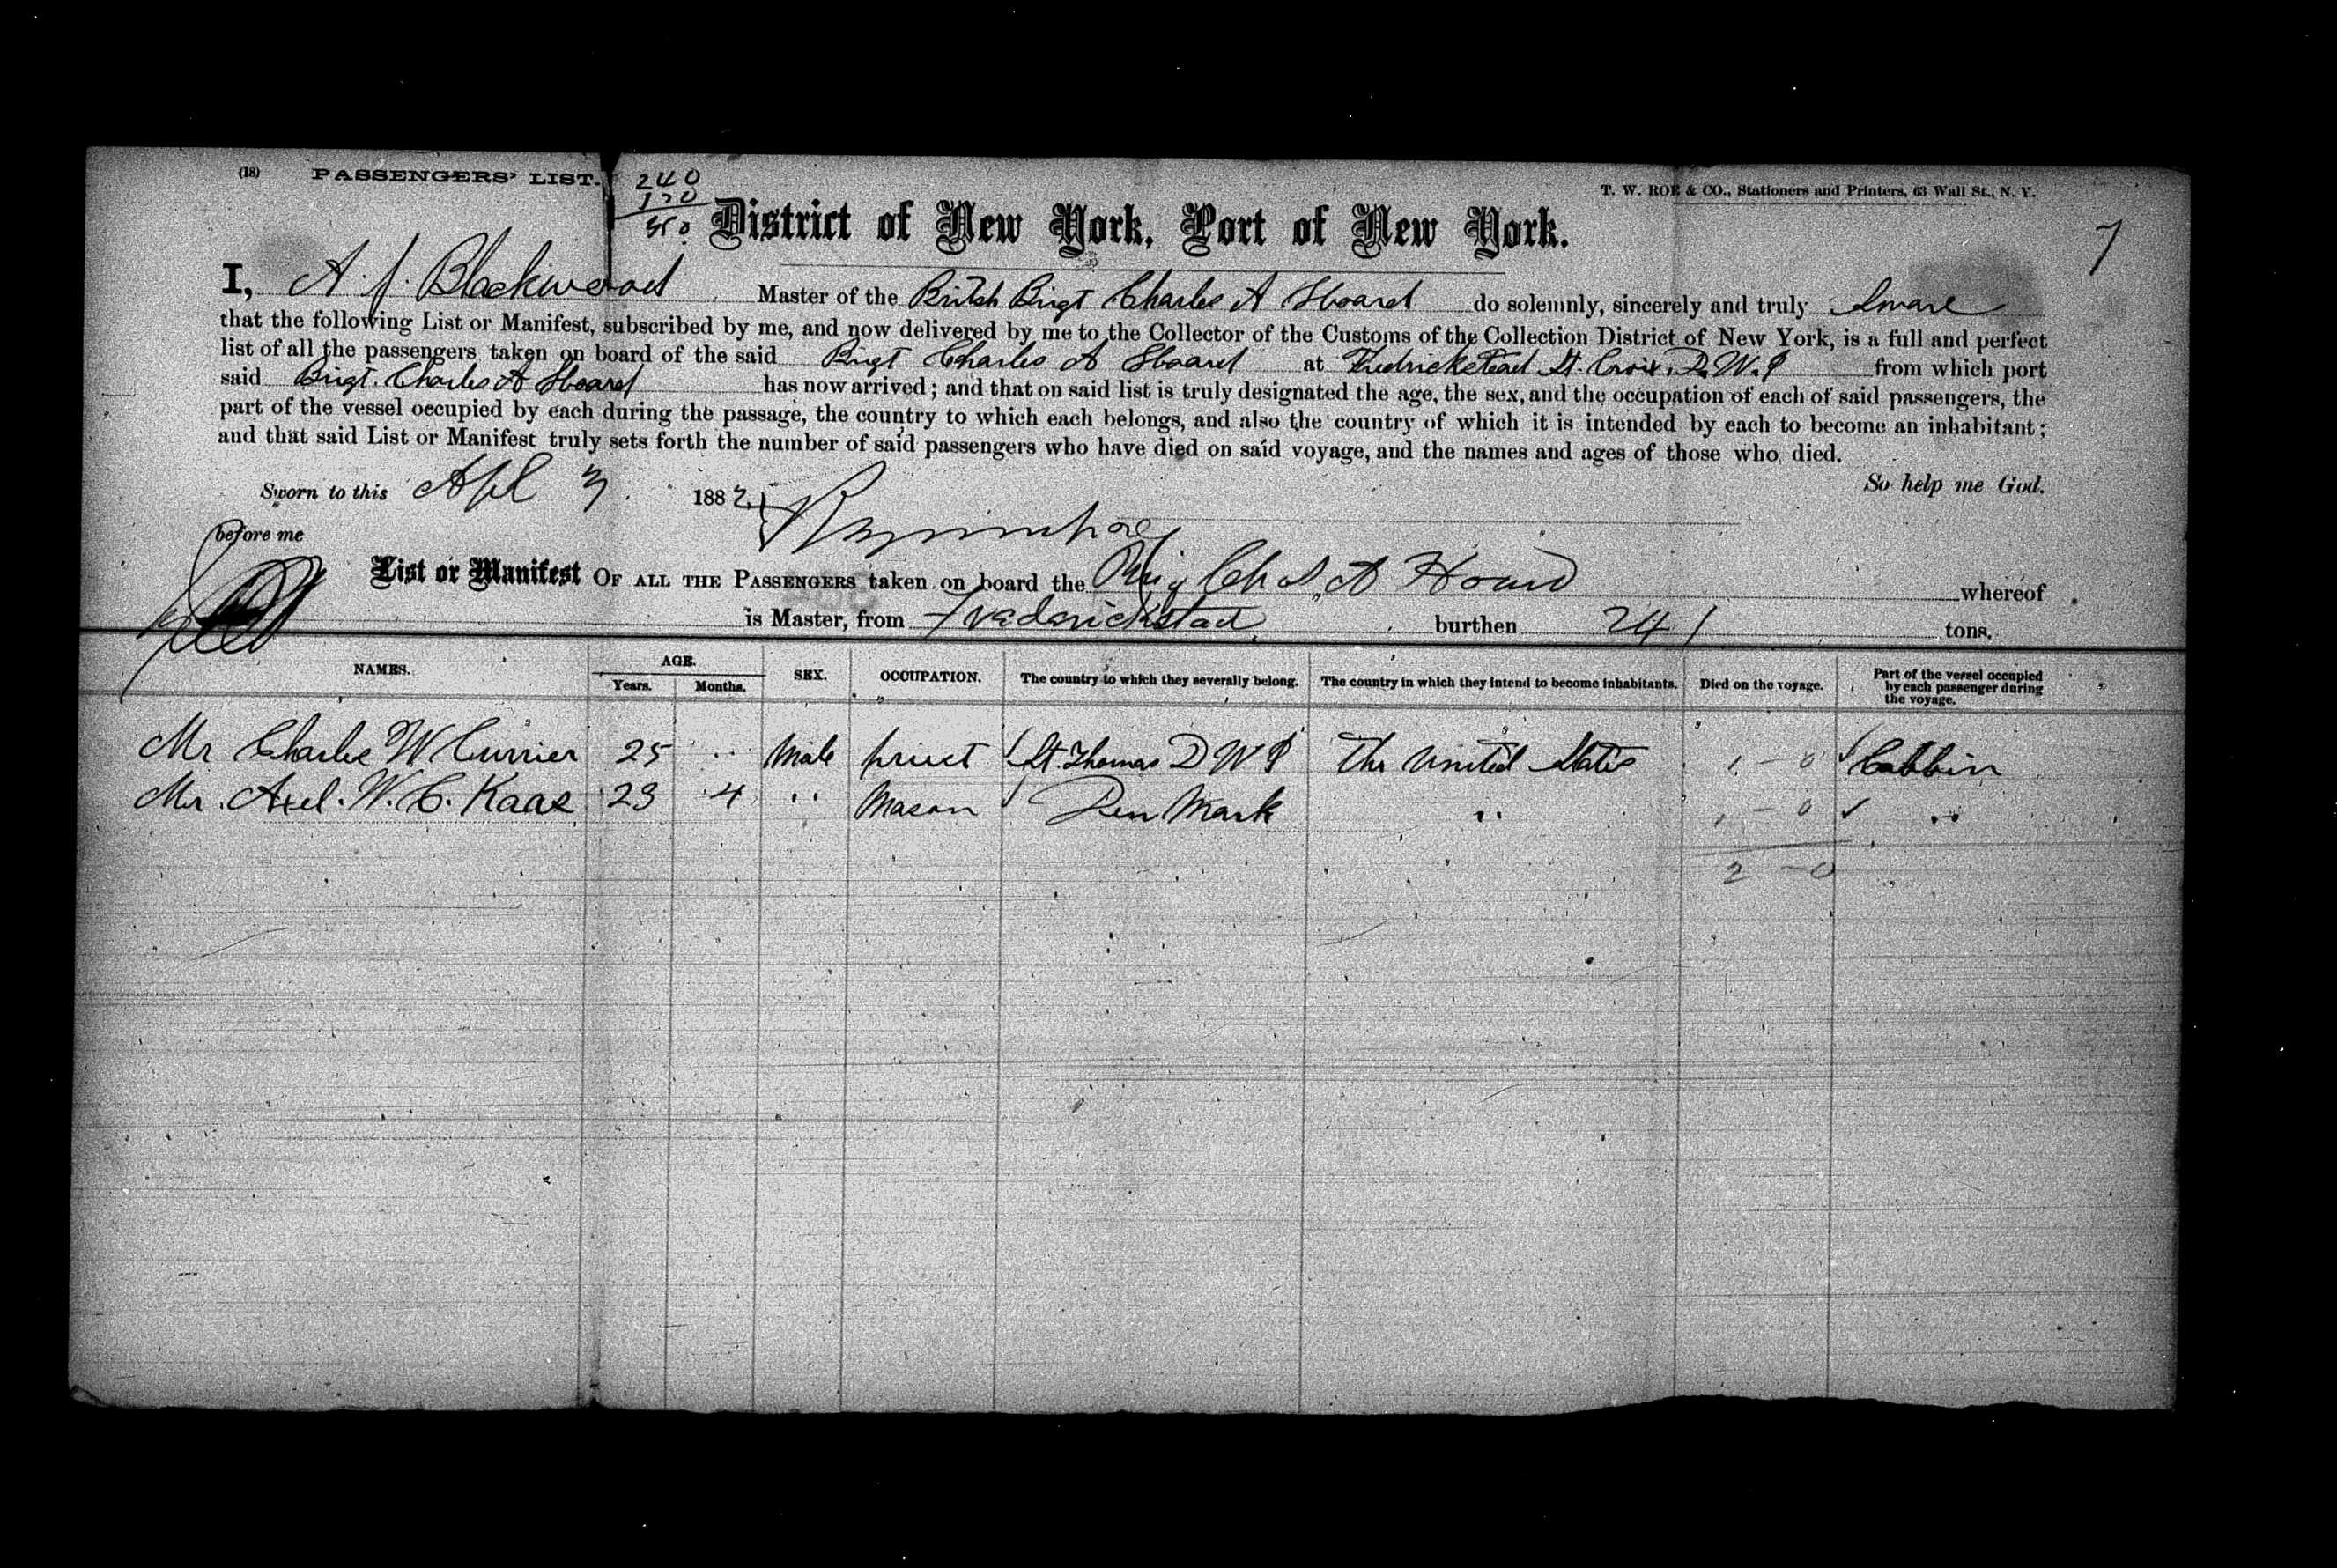 (18) PASSENGERS' LIST.
240
120
T. W. ROE & CO., Stationers and Printers, 63 Wall St., N. Y.
7
District of New York, Port of New York.
I, A. J. Blackwood Master of the British Brigt Charles A Hoard do solemnly, sincerely and truly Swear
that the following List or Manifest, subscribed by me, and now delivered by me to the Collector of the Customs of the Collection District of New York, is a full and perfect
list of all the passengers taken on board of the said Brigt Charles A Hoard at Fredrickstead St. Croix. D. W. I from which port
said Brigt. Charles A Hoard has now arrived; and that on said list is truly designated the age, the sex, and the occupation of each of said passengers, the
part of the vessel occupied by each during the passage, the country to which each belongs, and also the country of which it is intended by each to become an inhabitant;
and that said List or Manifest truly sets forth the number of said passengers who have died on said voyage, and the names and ages of those who died.
So help me God.
Sworn to this Apl 3 1882
before me
List or Manifest OF ALL THE PASSENGERS taken on board the Brig Chs. A Hoard whereof
is Master, from Frederickstad burthen 241 tons.
NAMES. AGE. Years. Months. SEX. OCCUPATION. The country to which they severally belong. The country in which they intend to become inhabitants. Died on the voyage. Part of the vessel occupied by each passenger during the voyage.
Mr Charles W Currier 25 .. Male priest St. Thomas D W I The United States 1 - 0 Cabbin
Mr. Axel. W. C. Kaas 23 4 " Mason Den Mark " 1 - 0 "
2 - 0